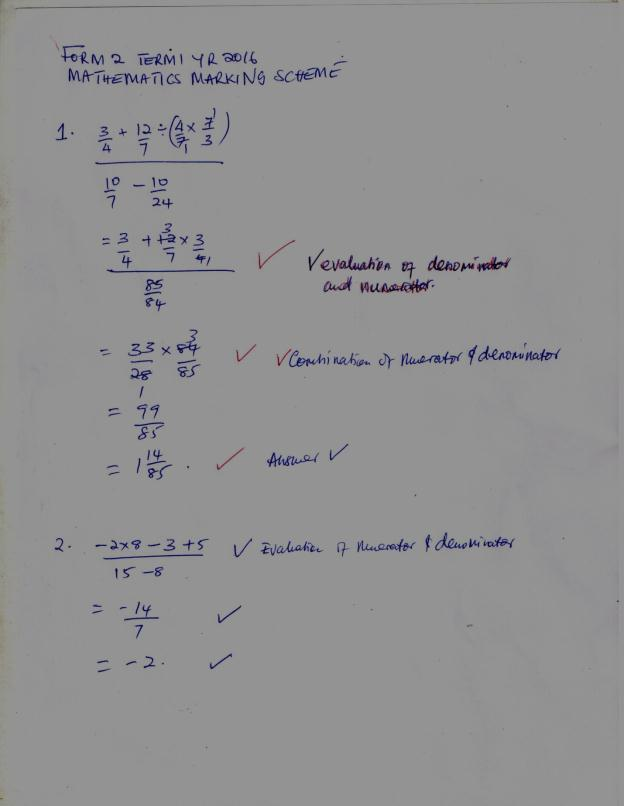 FORM 2 TERM 1 YR 2016
MATHEMATICS MARKING SCHEME
1. 3/4 + 12/7 ÷ (4/7 × 7/3)
10/7 − 10/24
= 3/4 + 12/7 × 3/4 ✓ ✓ evaluation of denominator
85/84 and numerator.
= 33/28 × 84/85 ✓ ✓ Combination of Numerator & denominator
= 99/85
= 1 14/85 . ✓ Answer ✓
2. −2×8 − 3 + 5 ✓ Evaluation of Numerator & denominator
15 − 8
= −14/7 ✓
= −2. ✓